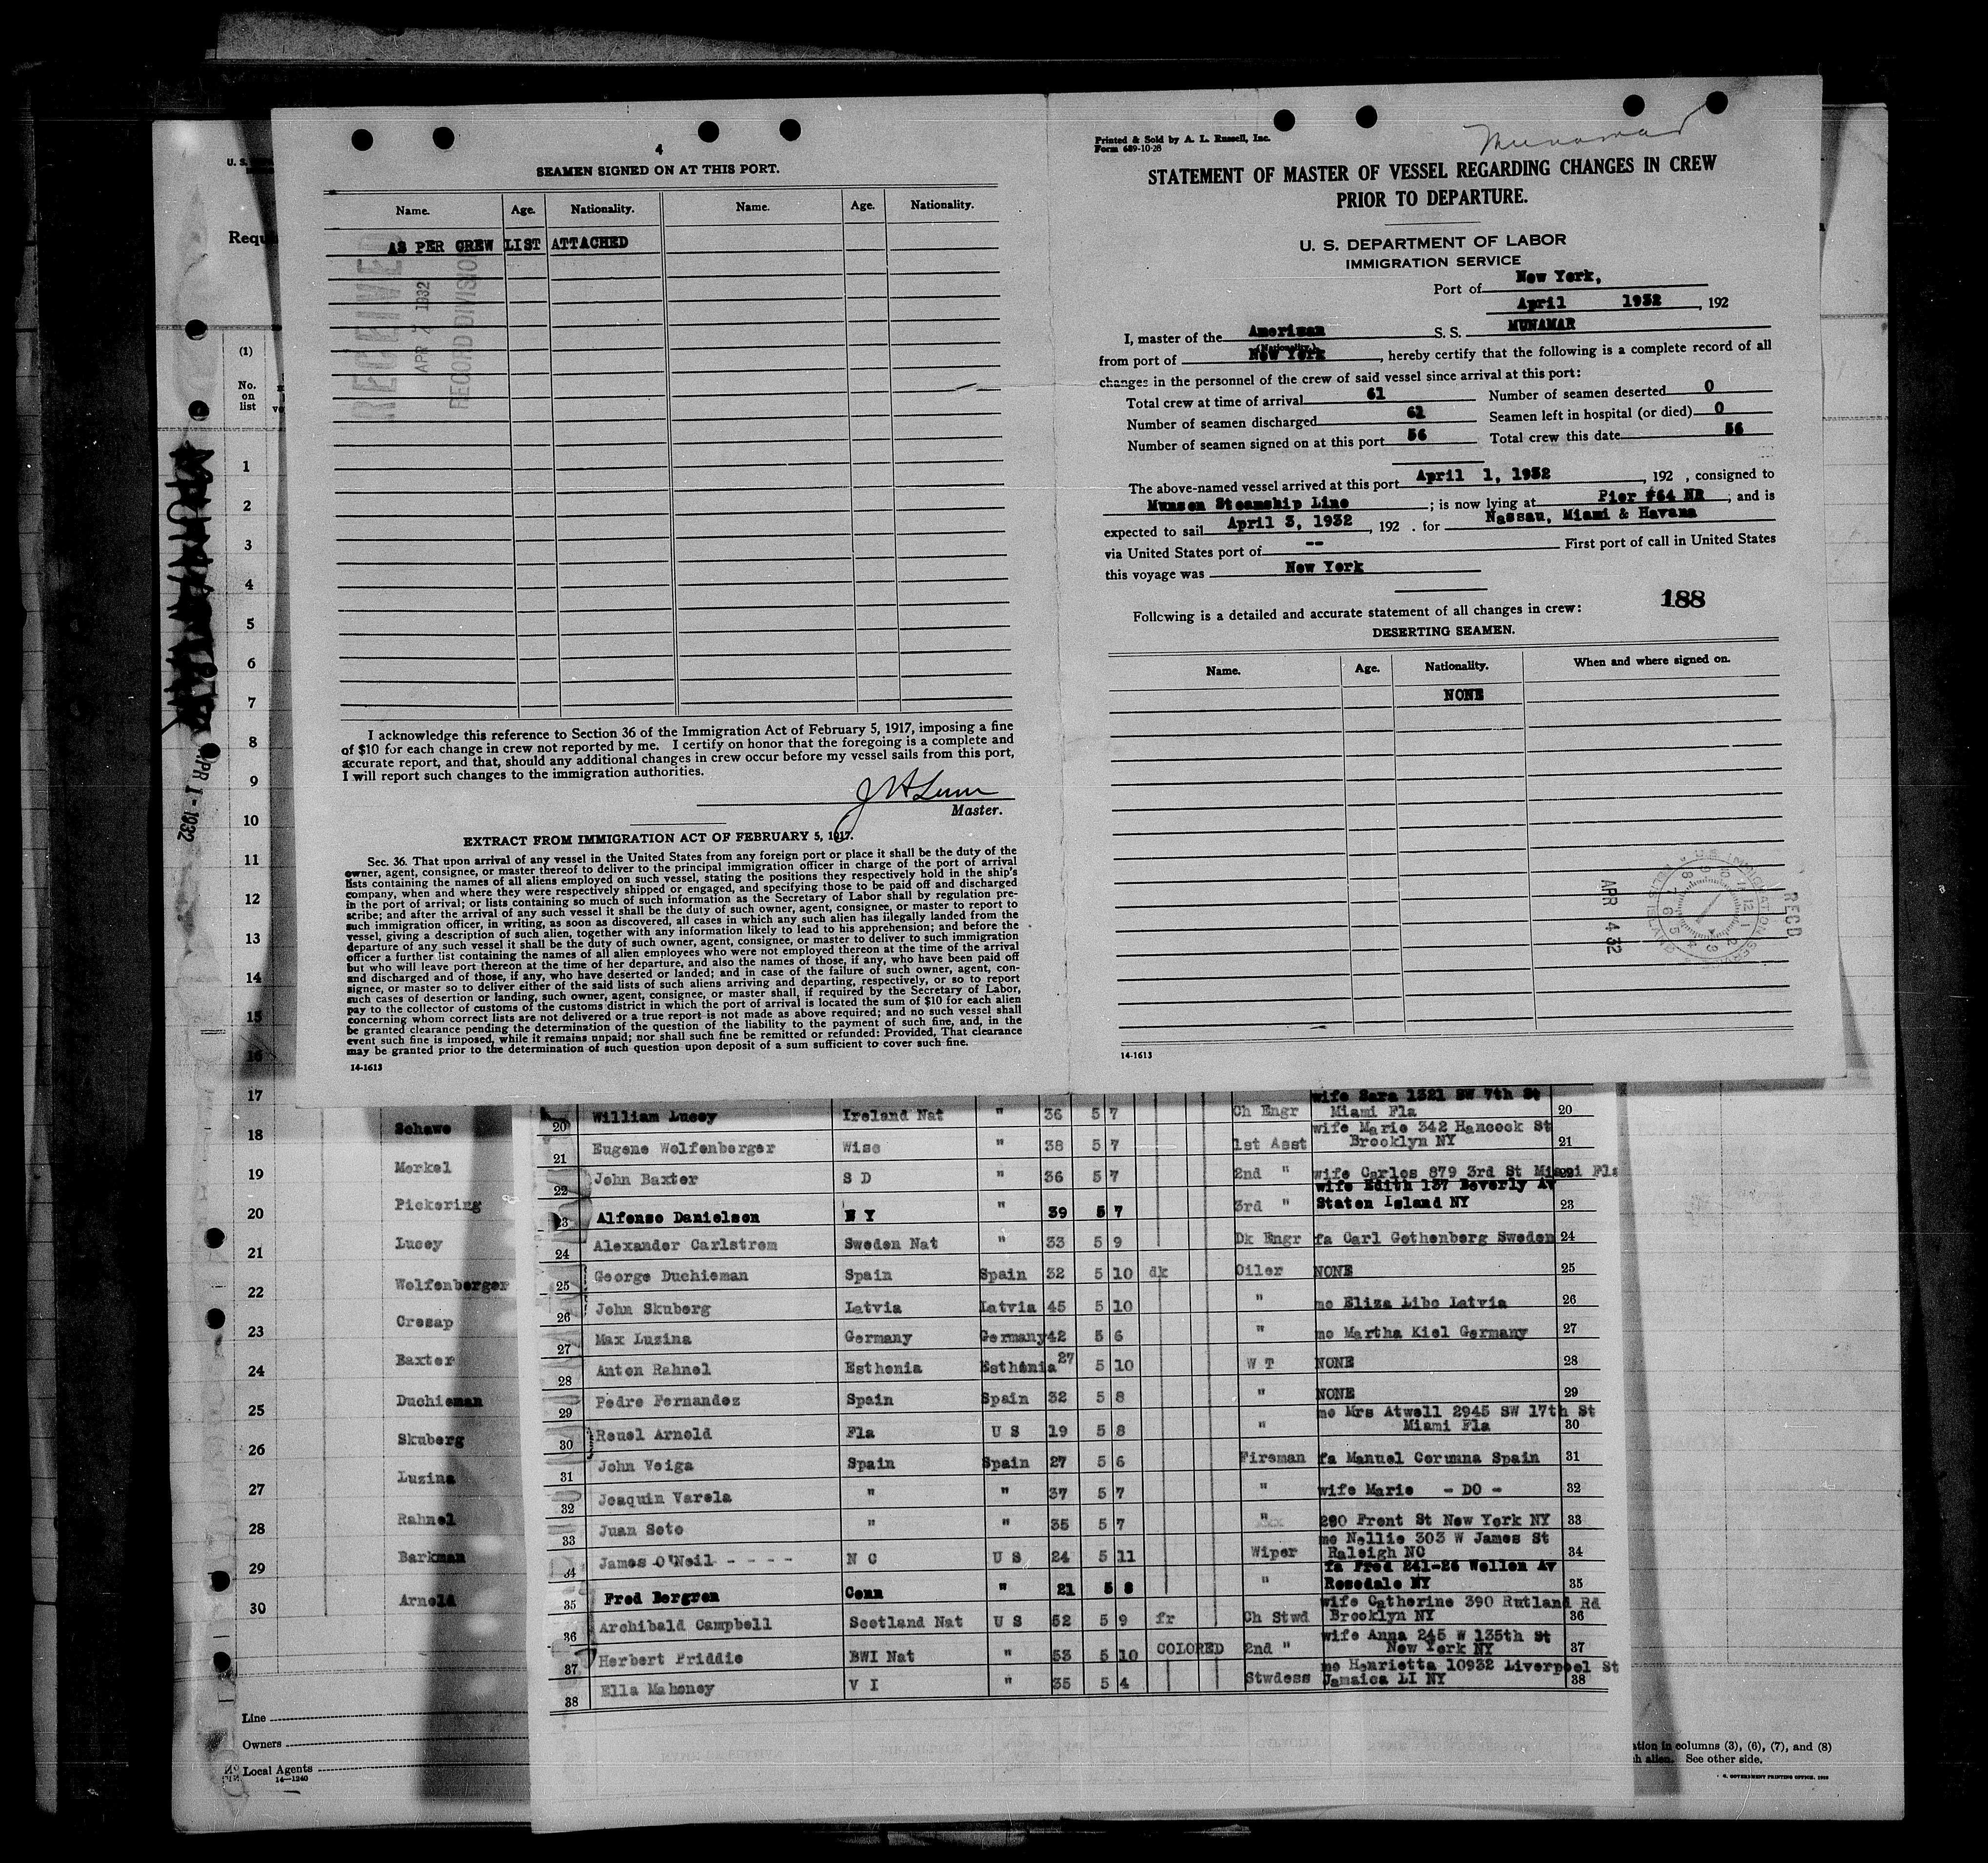 4
SEAMEN SIGNED ON AT THIS PORT.
Name. Age. Nationality. Name. Age. Nationality.
AS PER CREW LIST ATTACHED
RECEIVED
APR 7 1932
RECORD DIVISION
I acknowledge this reference to Section 36 of the Immigration Act of February 5, 1917, imposing a fine
of $10 for each change in crew not reported by me. I certify on honor that the foregoing is a complete and
accurate report, and that, should any additional changes in crew occur before my vessel sails from this port,
I will report such changes to the immigration authorities.
Master.
EXTRACT FROM IMMIGRATION ACT OF FEBRUARY 5, 1917.
Sec. 36. That upon arrival of any vessel in the United States from any foreign port or place it shall be the duty of the
owner, agent, consignee, or master thereof to deliver to the principal immigration officer in charge of the port of arrival
lists containing the names of all aliens employed on such vessel, stating the positions they respectively hold in the ship's
company, when and where they were respectively shipped or engaged, and specifying those to be paid off and discharged
in the port of arrival; or lists containing so much of such information as the Secretary of Labor shall by regulation pre-
scribe; and after the arrival of any such vessel it shall be the duty of such owner, agent, consignee, or master to report to
such immigration officer, in writing, as soon as discovered, all cases in which any such alien has illegally landed from the
vessel, giving a description of such alien, together with any information likely to lead to his apprehension; and before the
departure of any such vessel it shall be the duty of such owner, agent, consignee, or master to deliver to such immigration
officer a further list containing the names of all alien employees who were not employed thereon at the time of the arrival
but who will leave port thereon at the time of her departure, and also the names of those, if any, who have been paid off
and discharged and of those, if any, who have deserted or landed; and in case of the failure of such owner, agent, con-
signee, or master so to deliver either of the said lists of such aliens arriving and departing, respectively, or so to report
such cases of desertion or landing, such owner, agent, consignee, or master shall, if required by the Secretary of Labor,
pay to the collector of customs of the customs district in which the port of arrival is located the sum of $10 for each alien
concerning whom correct lists are not delivered or a true report is not made as above required; and no such vessel shall
be granted clearance pending the determination of the question of the liability to the payment of such fine, and, in the
event such fine is imposed, while it remains unpaid; nor shall such fine be remitted or refunded: Provided, That clearance
may be granted prior to the determination of such question upon deposit of a sum sufficient to cover such fine.
14-1613
Printed & Sold by A. L. Russell, Inc.
Form 689-10-28
Munamar
STATEMENT OF MASTER OF VESSEL REGARDING CHANGES IN CREW
PRIOR TO DEPARTURE.
U. S. DEPARTMENT OF LABOR
IMMIGRATION SERVICE
Port of New York,
April 1932, 192
I, master of the American S. S. MUNAMAR
(Nationality.)
from port of New York, hereby certify that the following is a complete record of all
changes in the personnel of the crew of said vessel since arrival at this port:
Total crew at time of arrival 61 Number of seamen deserted 0
Number of seamen discharged 61 Seamen left in hospital (or died) 0
Number of seamen signed on at this port 56 Total crew this date 56
The above-named vessel arrived at this port April 1, 1932, 192 , consigned to
Munson Steamship Line ; is now lying at Pier #64 NR ; and is
expected to sail April 3, 1932, 192 . for Nassau, Miami & Havana
via United States port of -- First port of call in United States
this voyage was New York
188
Following is a detailed and accurate statement of all changes in crew:
DESERTING SEAMEN.
Name. Age. Nationality. When and where signed on.
NONE
REC'D
APR 4 32
14-1613
U. S.
Requ
(1)
No.
on
list
APR 1 - 1932
1
2
3
4
5
6
7
8
9
10
11
12
13
14
15
16
17
18 Schawe
19 Merkel
20 Pickering
21 Lucey
22 Wolfenberger
23 Cresap
24 Baxter
25 Duchieman
26 Skuberg
27 Luzina
28 Rahnel
29 Barkman
30 Arnold
Line
Owners
Local Agents
14—1240
wife Sara 1321 SW 7th St
20 William Lucey Ireland Nat " 36 5 7 Ch Engr Miami Fla 20
wife Marie 342 Hancock St
21 Eugene Wolfenberger Wisc " 38 5 7 1st Asst Brooklyn NY 21
22 John Baxter S D " 36 5 7 2nd " wife Carlos 879 3rd St Miami Fla
wife Edith 137 Beverly Av
23 Alfonso Danielsen N Y " 39 5 7 3rd " Staten Island NY 23
24 Alexander Carlstrom Sweden Nat " 33 5 9 Dk Engr fa Carl Gothenberg Sweden 24
25 George Duchieman Spain Spain 32 5 10 dk Oiler NONE 25
26 John Skuberg Latvia Latvia 45 5 10 " mo Eliza Libo Latvia 26
27 Max Luzina Germany Germany 42 5 6 " mo Martha Kiel Germany 27
28 Anton Rahnel Esthonia Esthonia 27 5 10 W T NONE 28
29 Pedro Fernandez Spain Spain 32 5 8 " NONE 29
mo Mrs Atwell 2945 SW 17th St
30 Reuel Arnold Fla U S 19 5 8 " Miami Fla 30
31 John Veiga Spain Spain 27 5 6 Fireman fa Manuel Corunna Spain 31
32 Joaquin Varela " " 37 5 7 " wife Marie - DO - 32
33 Juan Soto " " 35 5 7 " 290 Front St New York NY 33
mo Nellie 303 W James St
34 James O'Neil - - - - N C U S 24 5 11 Wiper Raleigh NC 34
fa Fred 241-26 Wellen Av
35 Fred Bergren Conn " 21 5 8 " Rosedale NY 35
wife Catherine 390 Rutland Rd
36 Archibald Campbell Scotland Nat U S 52 5 9 fr Ch Stwd Brooklyn NY 36
wife Anna 245 W 135th St
37 Herbert Priddie BWI Nat " 53 5 10 COLORED 2nd " New York NY 37
mo Henrietta 10932 Liverpool St
38 Ella Mahoney V I " 35 5 4 Stwdess Jamaica LI NY 38
ation in columns (3), (6), (7), and (8)
h alien. See other side.
GOVERNMENT PRINTING OFFICE